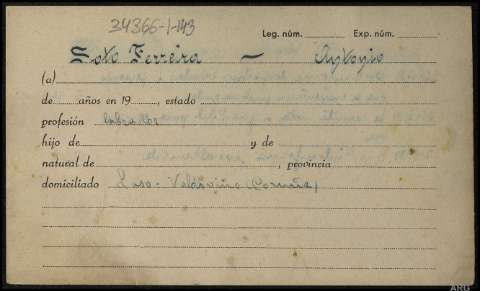 34366-1-143
Leg. núm. Exp. núm.
Soto Ferreira — Antonio
(a)
de años en 19 , estado
profesión labrador
hijo de y de
natural de , provincia
domiciliado Laso - (Coruña)
ARG